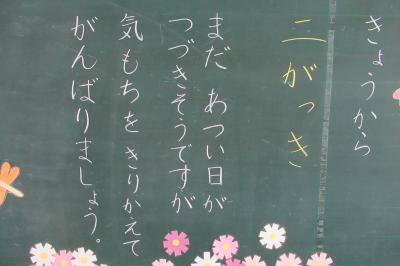 きょうから
二がっき
まだ あつい日が
つづきそうですが
気もちを きりかえて
がんばりましょう。